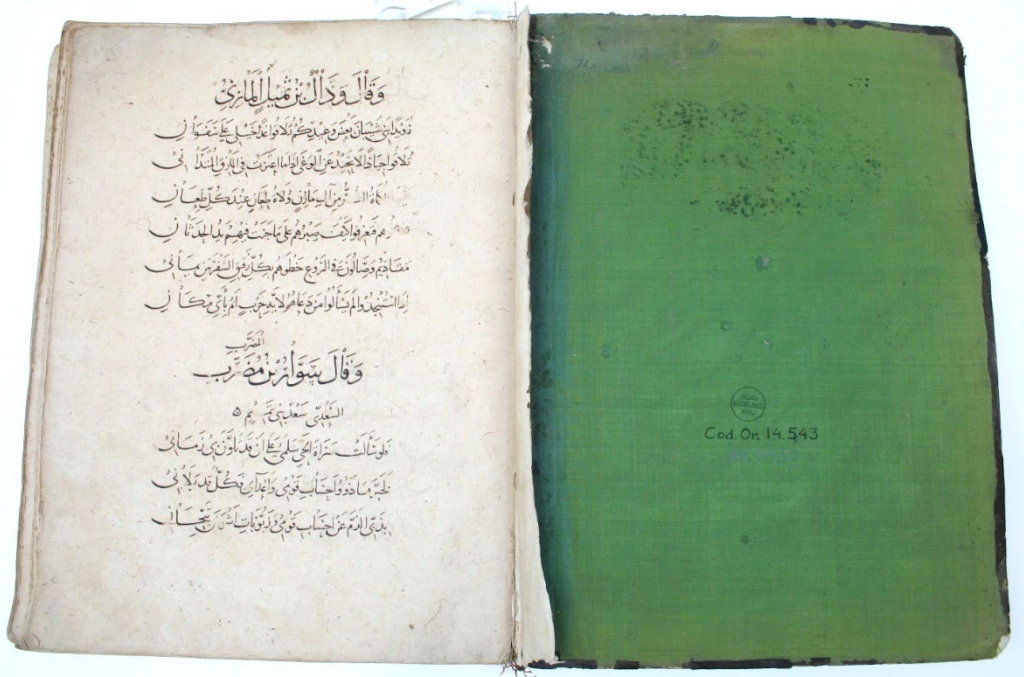 وَقَالَ وَدَّاكُ بْنُ ثُمَيْلٍ الْمَازِنِيُّ
رويد بني شيبان بعض وعيدكم تلاقوا غدا خيلي على سفوان
تلاقوا جيادا لا تحيد عن الوغى اذا ما اغتدت في المازق المتداني
الكماة من آل مازن ولاة طعان عند كل طعان
فتعرفوا كيف صبرهم على ما جنت فيهم يد الحدثان
مقاديم وصالون في الروع خطوهم بكل رقيق الشفرتين يماني
اذا استنجدوا لم يسألوا من دعاهم لاية حرب ام باي مكان
المُضَرَّب
وَقَالَ سَوَّارُ بْنُ مُضَرَّبٍ
السعدي سعد بني تميم
فلو سألت سراة الحي سلمى على ان قد تلون بي زماني
لخبرها ذوو احساب قومي واعدائي فكل قد بلاني
بذبي الذم عن احساب قومي وزبونات اشوس تيحان
Cod. Or. 14.543